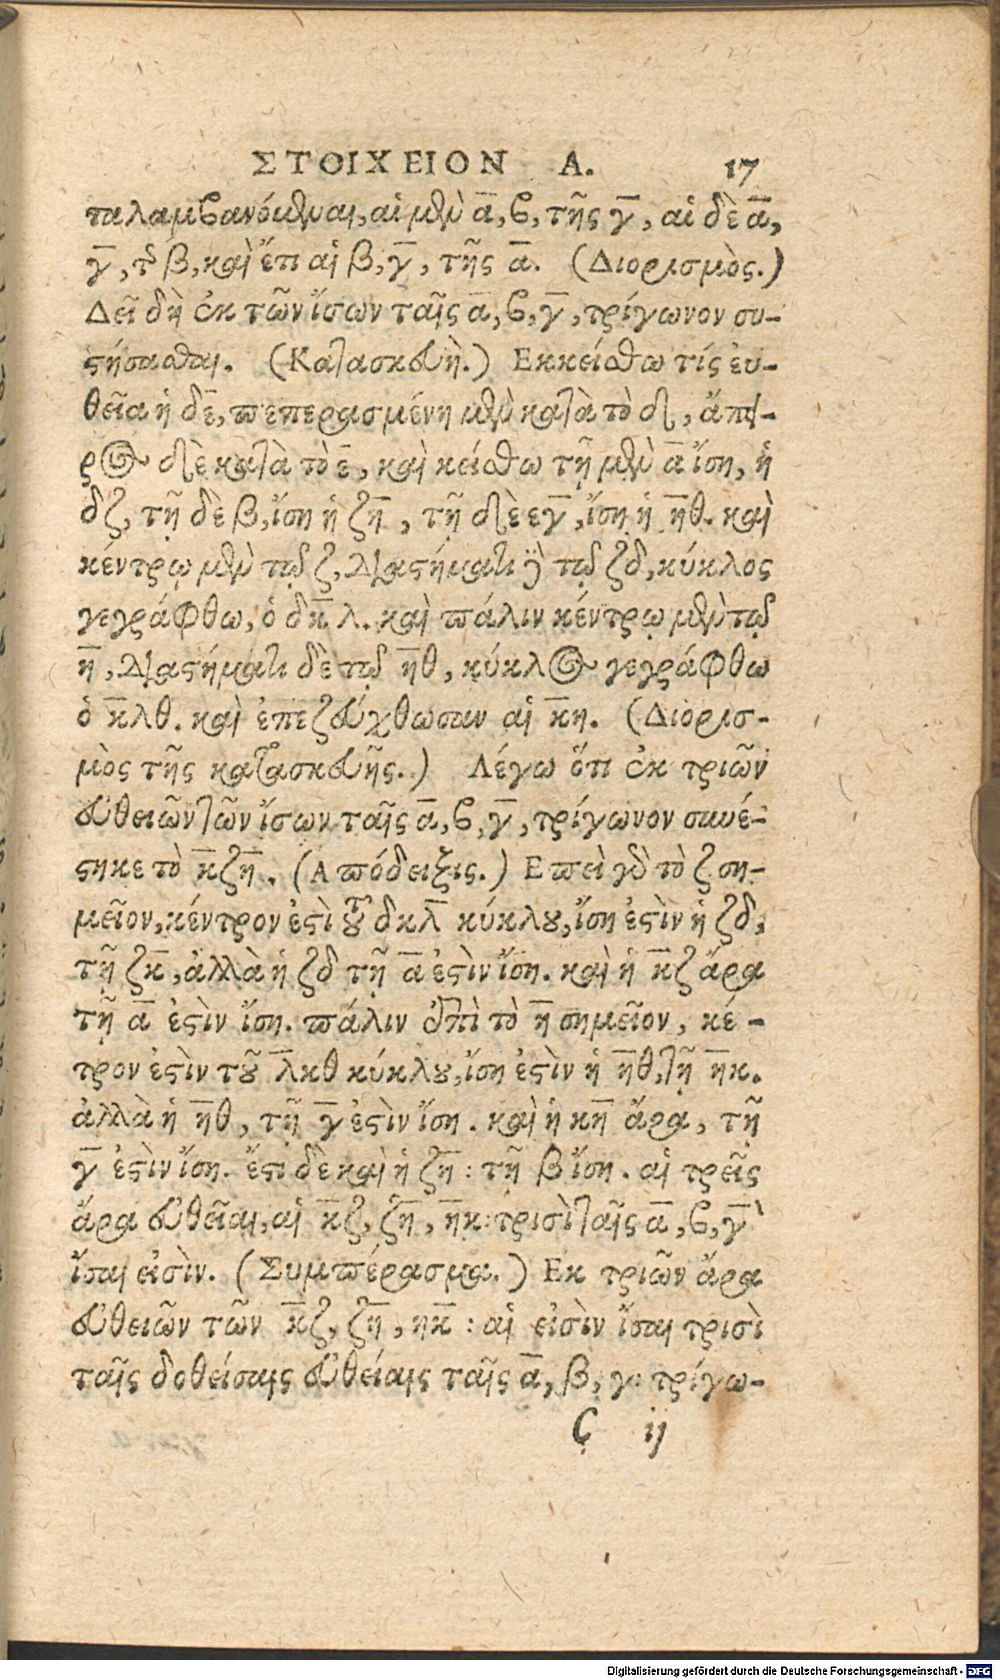 ΣΤΟΙΧΕΙΟΝ Α. 17
ταλαμβανόμεναι, αἱ μὲν α̅, β, τῆς γ̅, αἱ δὲ α̅,
γ̅, τῆς β, καὶ ἔτι αἱ β, γ̅, τῆς α̅. (Διορισμὸς.)
Δεῖ δὴ ἐκ τῶν ἴσων ταῖς α̅, β, γ̅, τρίγωνον συ-
στήσασθαι. (Κατασκευὴ.) Εκκείσθω τίς ἐυ-
θεῖα ἡ δε̅, πεπερασμένη μὲν κατὰ τὸ δ, ἄπει-
ρος δὲ κατὰ τὸ ε̅, καὶ κείσθω τῇ μὲν α̅ ἴση, ἡ
δζ, τῇ δὲ β, ἴση ἡ ζη̅, τῇ δὲ εγ̅, ἴση ἡ η̅θ. καὶ
κέντρῳ μὲν τῷ ζ, διαστήματι δὲ τῷ ζδ, κύκλος
γεγράφθω, ὁ δκ̅ λ. καὶ πάλιν κέντρῳ μὲν τῷ
η̅, διαστήματι δὲ τῷ η̅θ, κύκλος γεγράφθω
ὁ κ̅λθ. καὶ ἐπεζεύχθωσαν αἱ κ̅η. (Διορισ-
μὸς τῆς κατασκευῆς.) Λέγω ὅτι ἐκ τριῶν
εὐθειῶν τῶν ἴσων ταῖς α̅, β, γ̅, τρίγωνον συνέ-
στηκε τὸ κ̅ζη̅. (Απόδειξις.) Επεὶ γὰρ τὸ ζ ση-
μεῖον, κέντρον ἐστὶ τοῦ δκλ̅ κύκλου, ἴση ἐστὶν ἡ ζδ,
τῇ ζκ̅, ἀλλὰ ἡ ζδ τῇ α̅ ἐστὶν ἴση. καὶ ἡ κ̅ζ ἄρα
τῇ α̅ ἐστὶν ἴση. πάλιν ἐπὶ τὸ η̅ σημεῖον, κέ-
τρον ἐστὶν τοῦ λ̅κθ κύκλου, ἴση ἐστὶν ἡ η̅θ, τῇ η̅κ.
ἀλλὰ ἡ η̅θ, τῇ γ̅ ἐστὶν ἴση. καὶ ἡ κη̅ ἄρα, τῇ
γ̅ ἐστὶν ἴση. ἔστι δὲ καὶ ἡ ζη̅: τῇ β ἴση. αἱ τρεῖς
ἄρα εὐθεῖαι, αἱ κ̅ζ, ζη̅, η̅κ: τρισὶ ταῖς α̅, β, γ̅
ἴσαι εἰσὶν. (Συμπέρασμα.) Εκ τριῶν ἄρα
εὐθειῶν τῶν κ̅ζ, ζη̅, ηκ̅: αἱ εἰσὶν ἴσαι τρισὶ
ταῖς δοθείσαις εὐθείαις ταῖς α̅, β, γ: τρίγω-
C ij
Digitalisierung gefördert durch die Deutsche Forschungsgemeinschaft - DFG